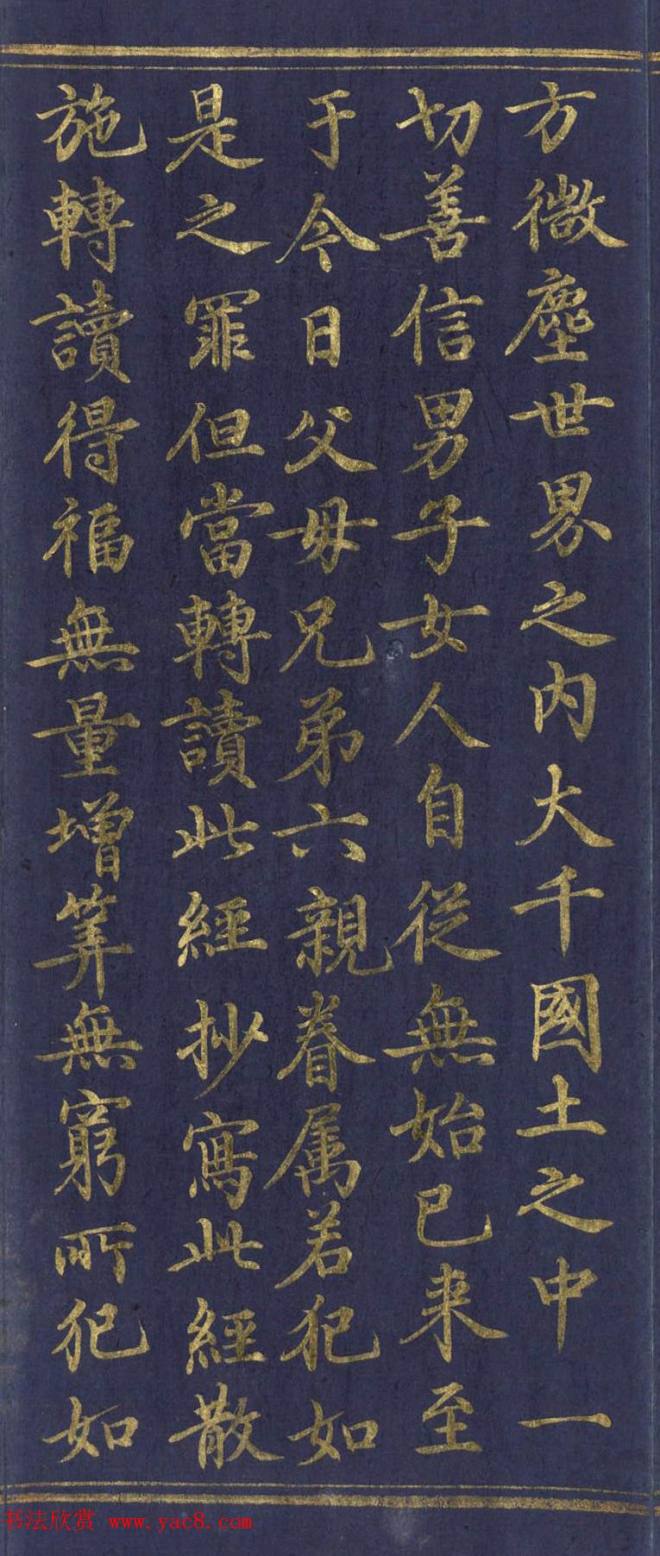 方微塵世界之内大千國土之中一
切善信男子女人自從無始已来至
于今日父母兄弟六親眷属若犯如
是之罪但當轉讀此經抄寫此經散
施轉讀得福無量增筭無窮所犯如
书法欣赏 www.yac8.com